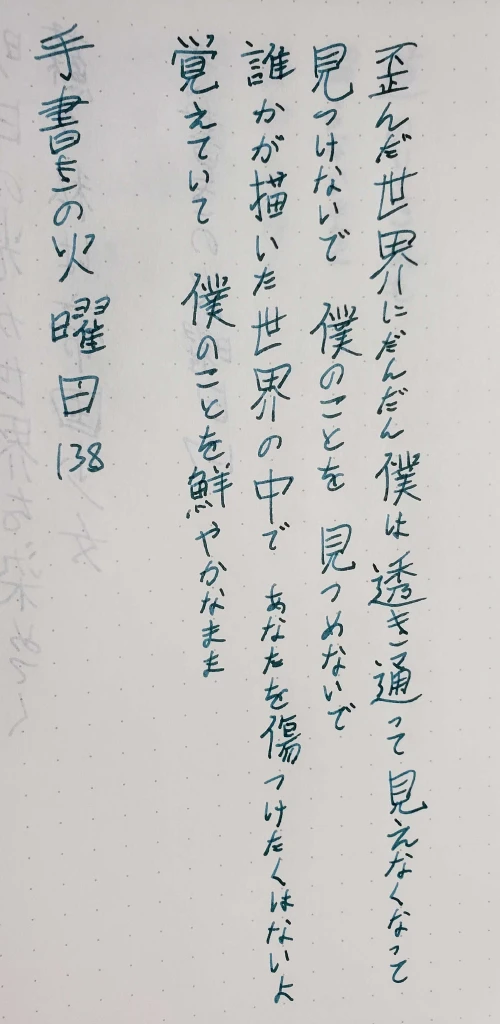 歪んだ世界にだんだん僕は透き通って見えなくなって
見つけないで 僕のことを 見つめないで
誰かが描いた世界の中で あなたを傷つけたくはないよ
覚えていて 僕のことを鮮やかなまま
手書きの火曜日138